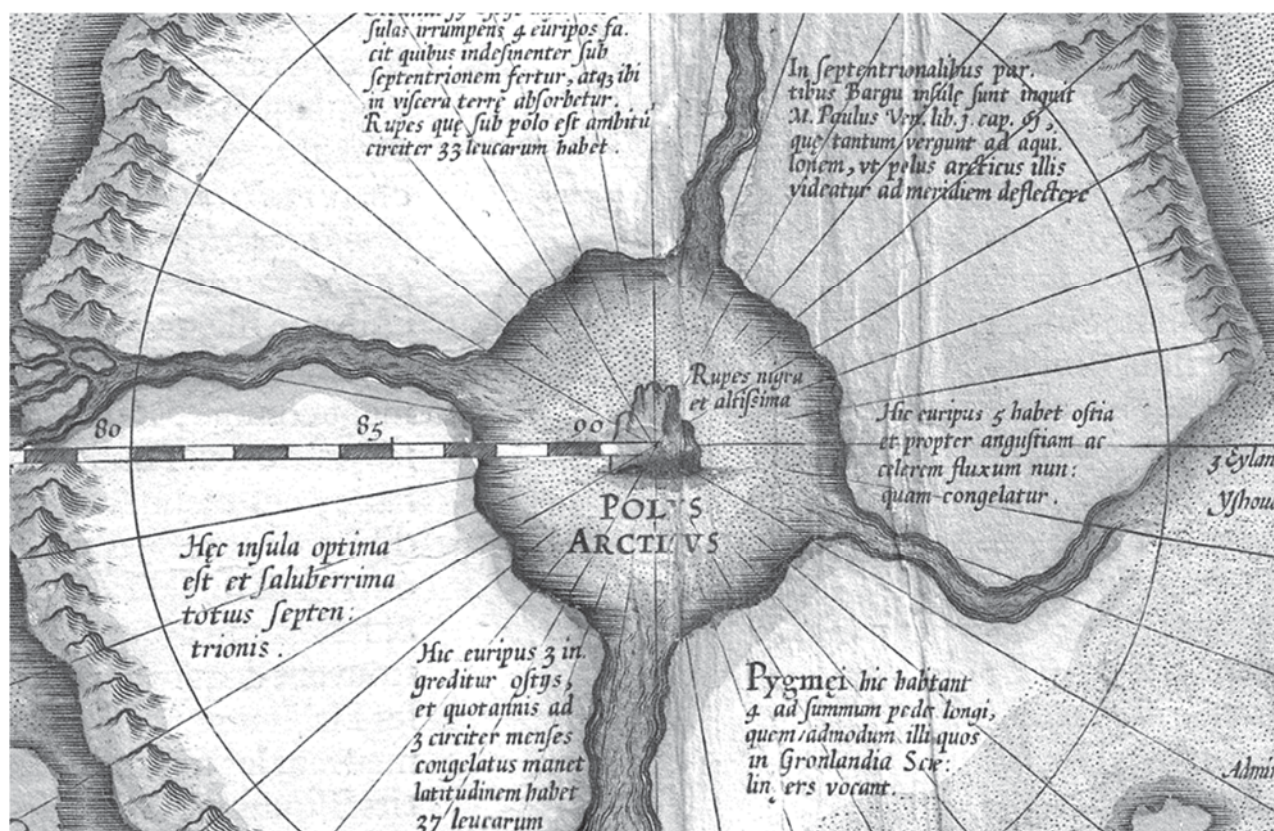 ſulas irrumpens 4 euripos fa.
cit quibus indeſinenter ſub
ſeptentrionem fertur, atqꝫ ibi
in viſcera terrę abſorbetur.
Rupes quę ſub polo eſt ambitū
circiter 33 leucarum habet.
In ſeptentrionalibus par.
tibus Bargu inſulę ſunt inquit
M. Paulus Ven. lib. j. cap.
quę tantum vergunt ad aqui.
lonem, vt polus arcticus illis
videatur ad meridiem deflectere
Rupes nigra
et altiſsima
80 85 90
Hic euripus 5 habet oſtia
et propter anguſtiam ac
celerem fluxum nun:
quam congelatur.
3 Eylan
Yſhou
POLVS
ARCTICVS
Hęc inſula optima
eſt et ſaluberrima
totius ſepten:
trionis.
Hic euripus 3 in.
greditur oſtijs,
et quotannis ad
3 circiter menſes
congelatus manet
latitudinem habet
37 leucarum
Pygmęi hic habitant
4 ad ſummum pedes longi,
quemadmodum illi quos
in Gronlandia Scre:
lingers vocant.